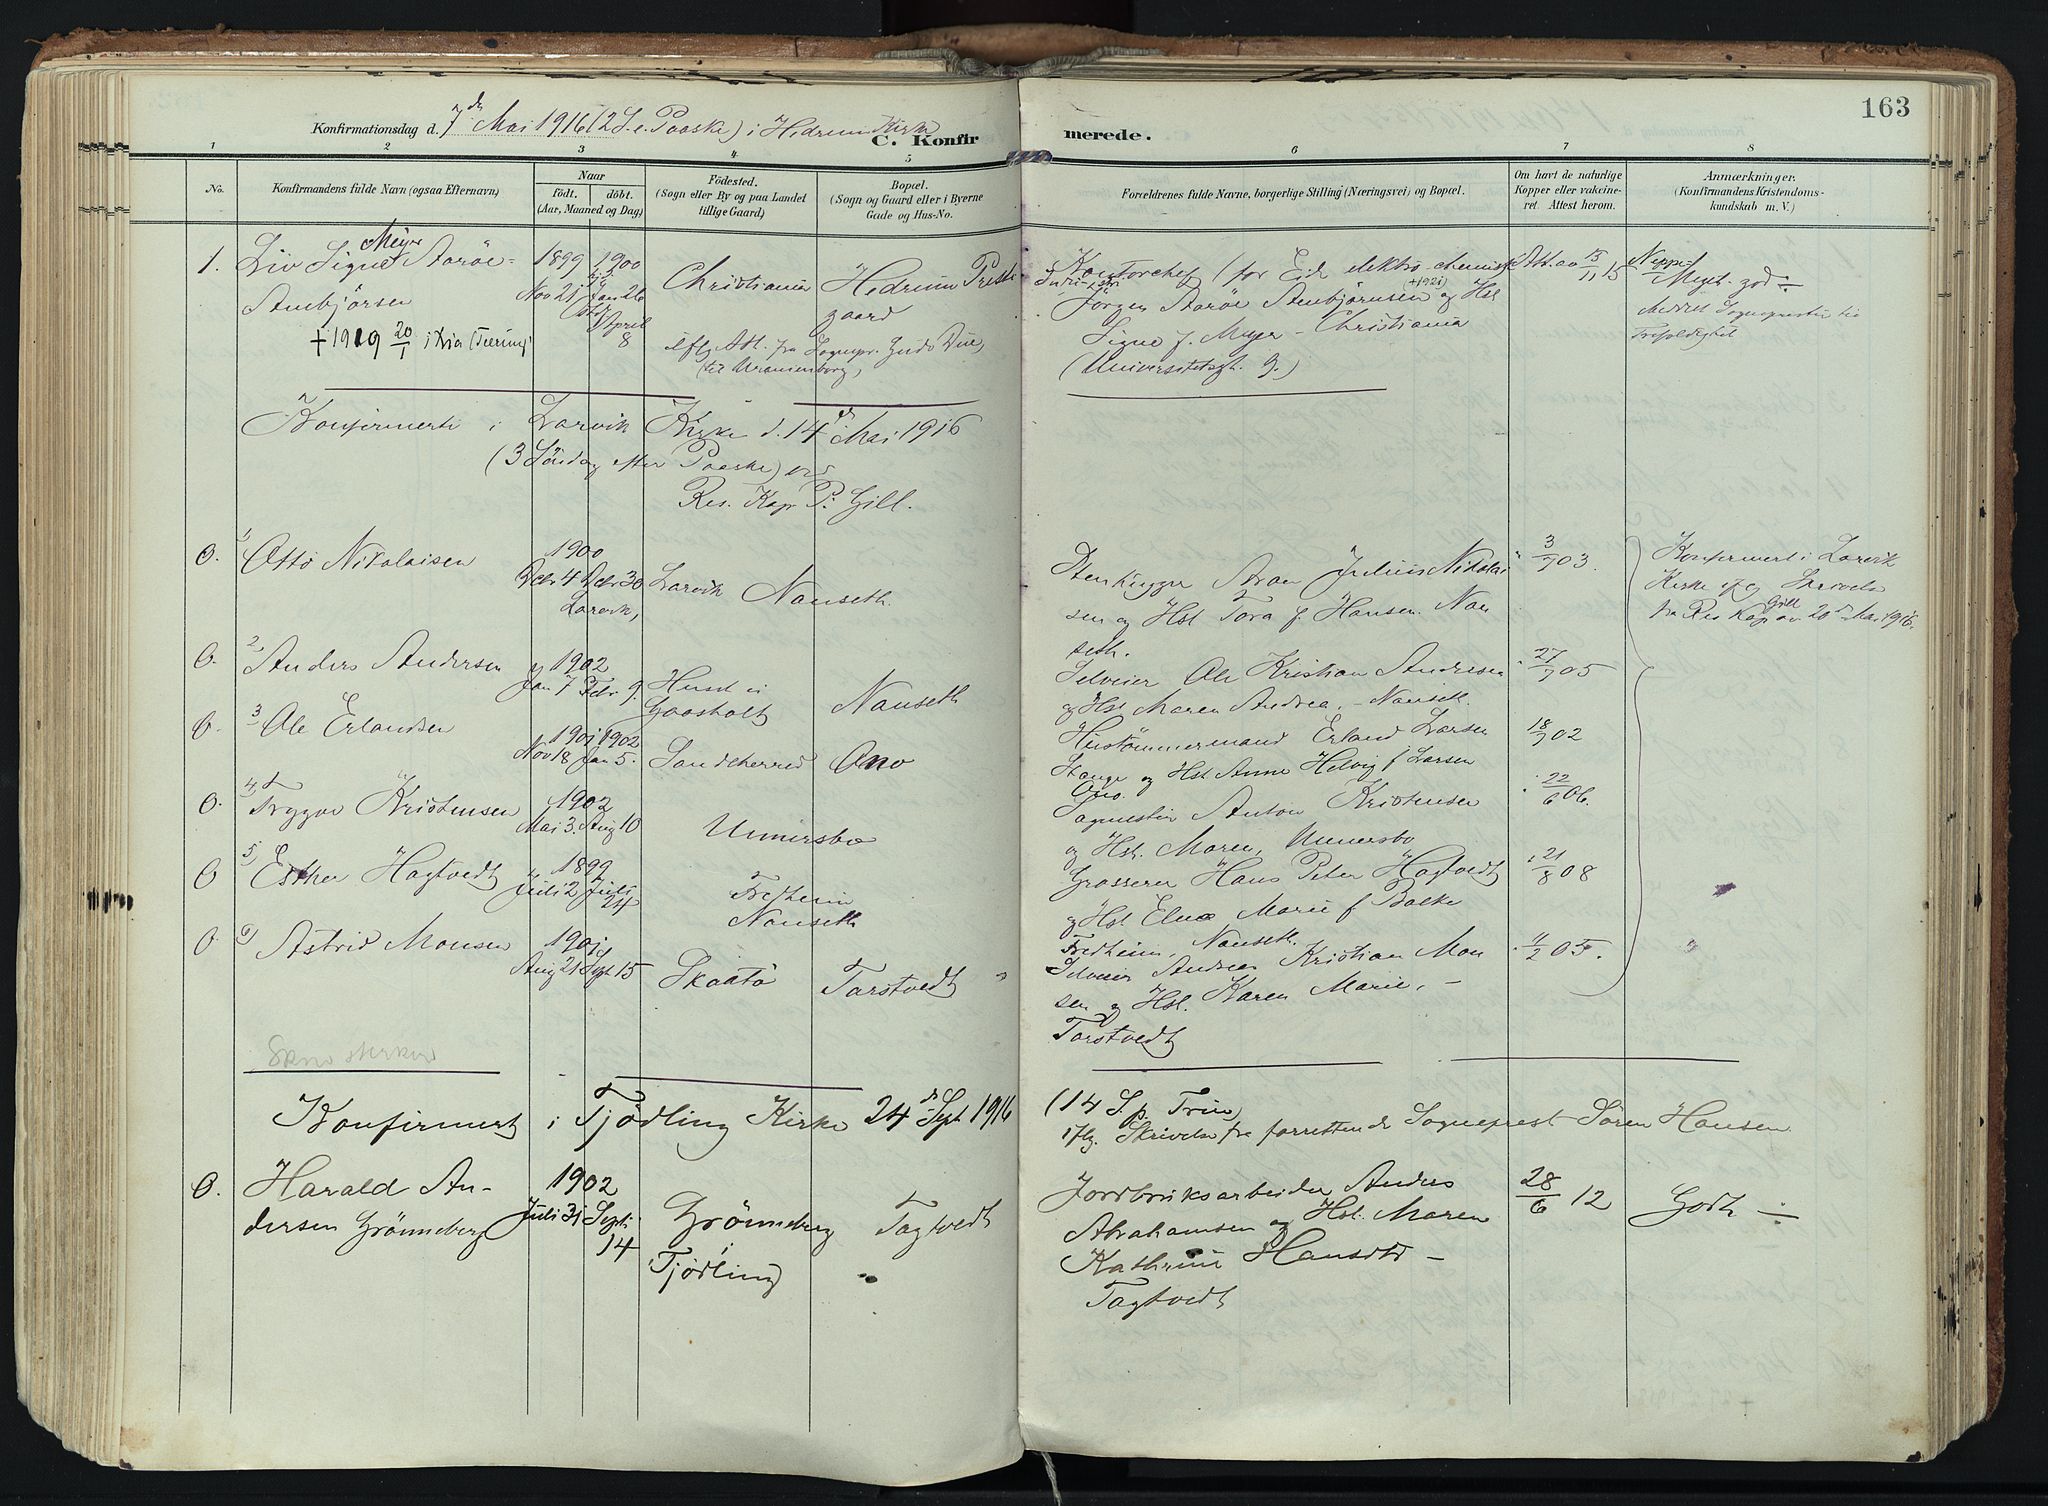 163
Konfirmationsdag d. 7de Mai 1916 (2 S. e. Paaske) i Hedrum Kirke
C. Konfirmerede.
1 2 3 4 5 6 7 8
No.
Konfirmandens fulde Navn (ogsaa Efternavn)
Naar
födt. döbt.
(Aar, Maaned og Dag)
Födested.
(Sogn eller By og paa Landet
tillige Gaard)
Bopæl.
(Sogn og Gaard eller i Byerne
Gade og Hus-No.
Forældrenes fulde Navne, borgerlige Stilling (Næringsvei) og Bopæl.
Om havt de naturlige
Kopper eller vakcine-
ret. Attest herom.
Anmærkninger.
(Konfirmandens Kristendoms-
kundskab m. V.)
1. Liv Signe Meyer Aaröe
Stenbjörsen
+ 1919 20/1 i Kria
1899 Nov 21
1900 Jan 26
April 8
Christiania
Hedrum Prestegaard
iflg Att. fra Sognepr. Due,
(til Uranienborg,
Kontorchef for Eide elektro-chemisk
Jörgen Aaröe Stenbjörnsen (+1921) og Hst
Signe f. Meyer - Christiania
(Universitetsgt. 9.)
Att. av 15/11 15
Meget god
Konfirmerte i Larvik Kirke d. 14de Mai 1916
(3 Söndag efter Paaske) ved
Res. Kap P. Gill.
0. 1) Otto Nikolaisen
1900
Debr 4 Debr 30
Larvik,
Larvik
Nanseth.
Stenhugger Aron Julius Nikolai
sen og Hst Tora f. Hansen. Nan
seth.
3/7 03.
Konfirmert i Larvik
Kirke iflg Skrivelse
fra Res Kap Gill av 20de Mai 1916.
0. 2) Anders Andersen
1902
Jan 7 Febr. 9
Gaasholt
Nanseth
Selveier Ole Kristian Andersen
og Hst Maren Andrea. - Nanseth.
27/7 05
0. 3) Ole Erlandsen
1901 1902
Nov 18 Jan 5.
Sandeherred
Ono
Hustömmermand Erland Larsen
Stange og Hst Anne Helvig f Larsen
Ono.
18/7 02
0. 4) Trygve Kristensen
1902
Mai 3. Aug 10
Unnersbo
Anton Kristensen
og Hst. Maren, Unnersbo
22/6 06.
0 5) Esther Hagtvedt
1899
Juli 2 Juli 24
Fredheim
Nanseth
Grosserer Hans Peter Hagtvedt
og Hst Elna Marie f Bakke
Fredheim, Nanseth.
21/8 08
0 6) Astrid Monsen
1901
Aug 21 Sept 15
Skaatö
Torstvedt
Selveier Andreas Kristian Mon
sen og Hst. Karen Marie, -
Torstvedt
4/2 05.
Konfirmert i Tjödling Kirke 24de Sept 1916 (14 S. p. Trin)
iflg. Skrivelse fra forrettende Sogneprest Sören Hansen
0. Harald An-
dersen Grönneberg
1902
Juli 31 Septr. 14
Grönneberg
Tjödling
Tagtvedt
Jordbruksarbeider Anders
Abrahamsen og Hst. Maren
Kathrine Hansdtr -
Tagtvedt
28/6 12
Godt -